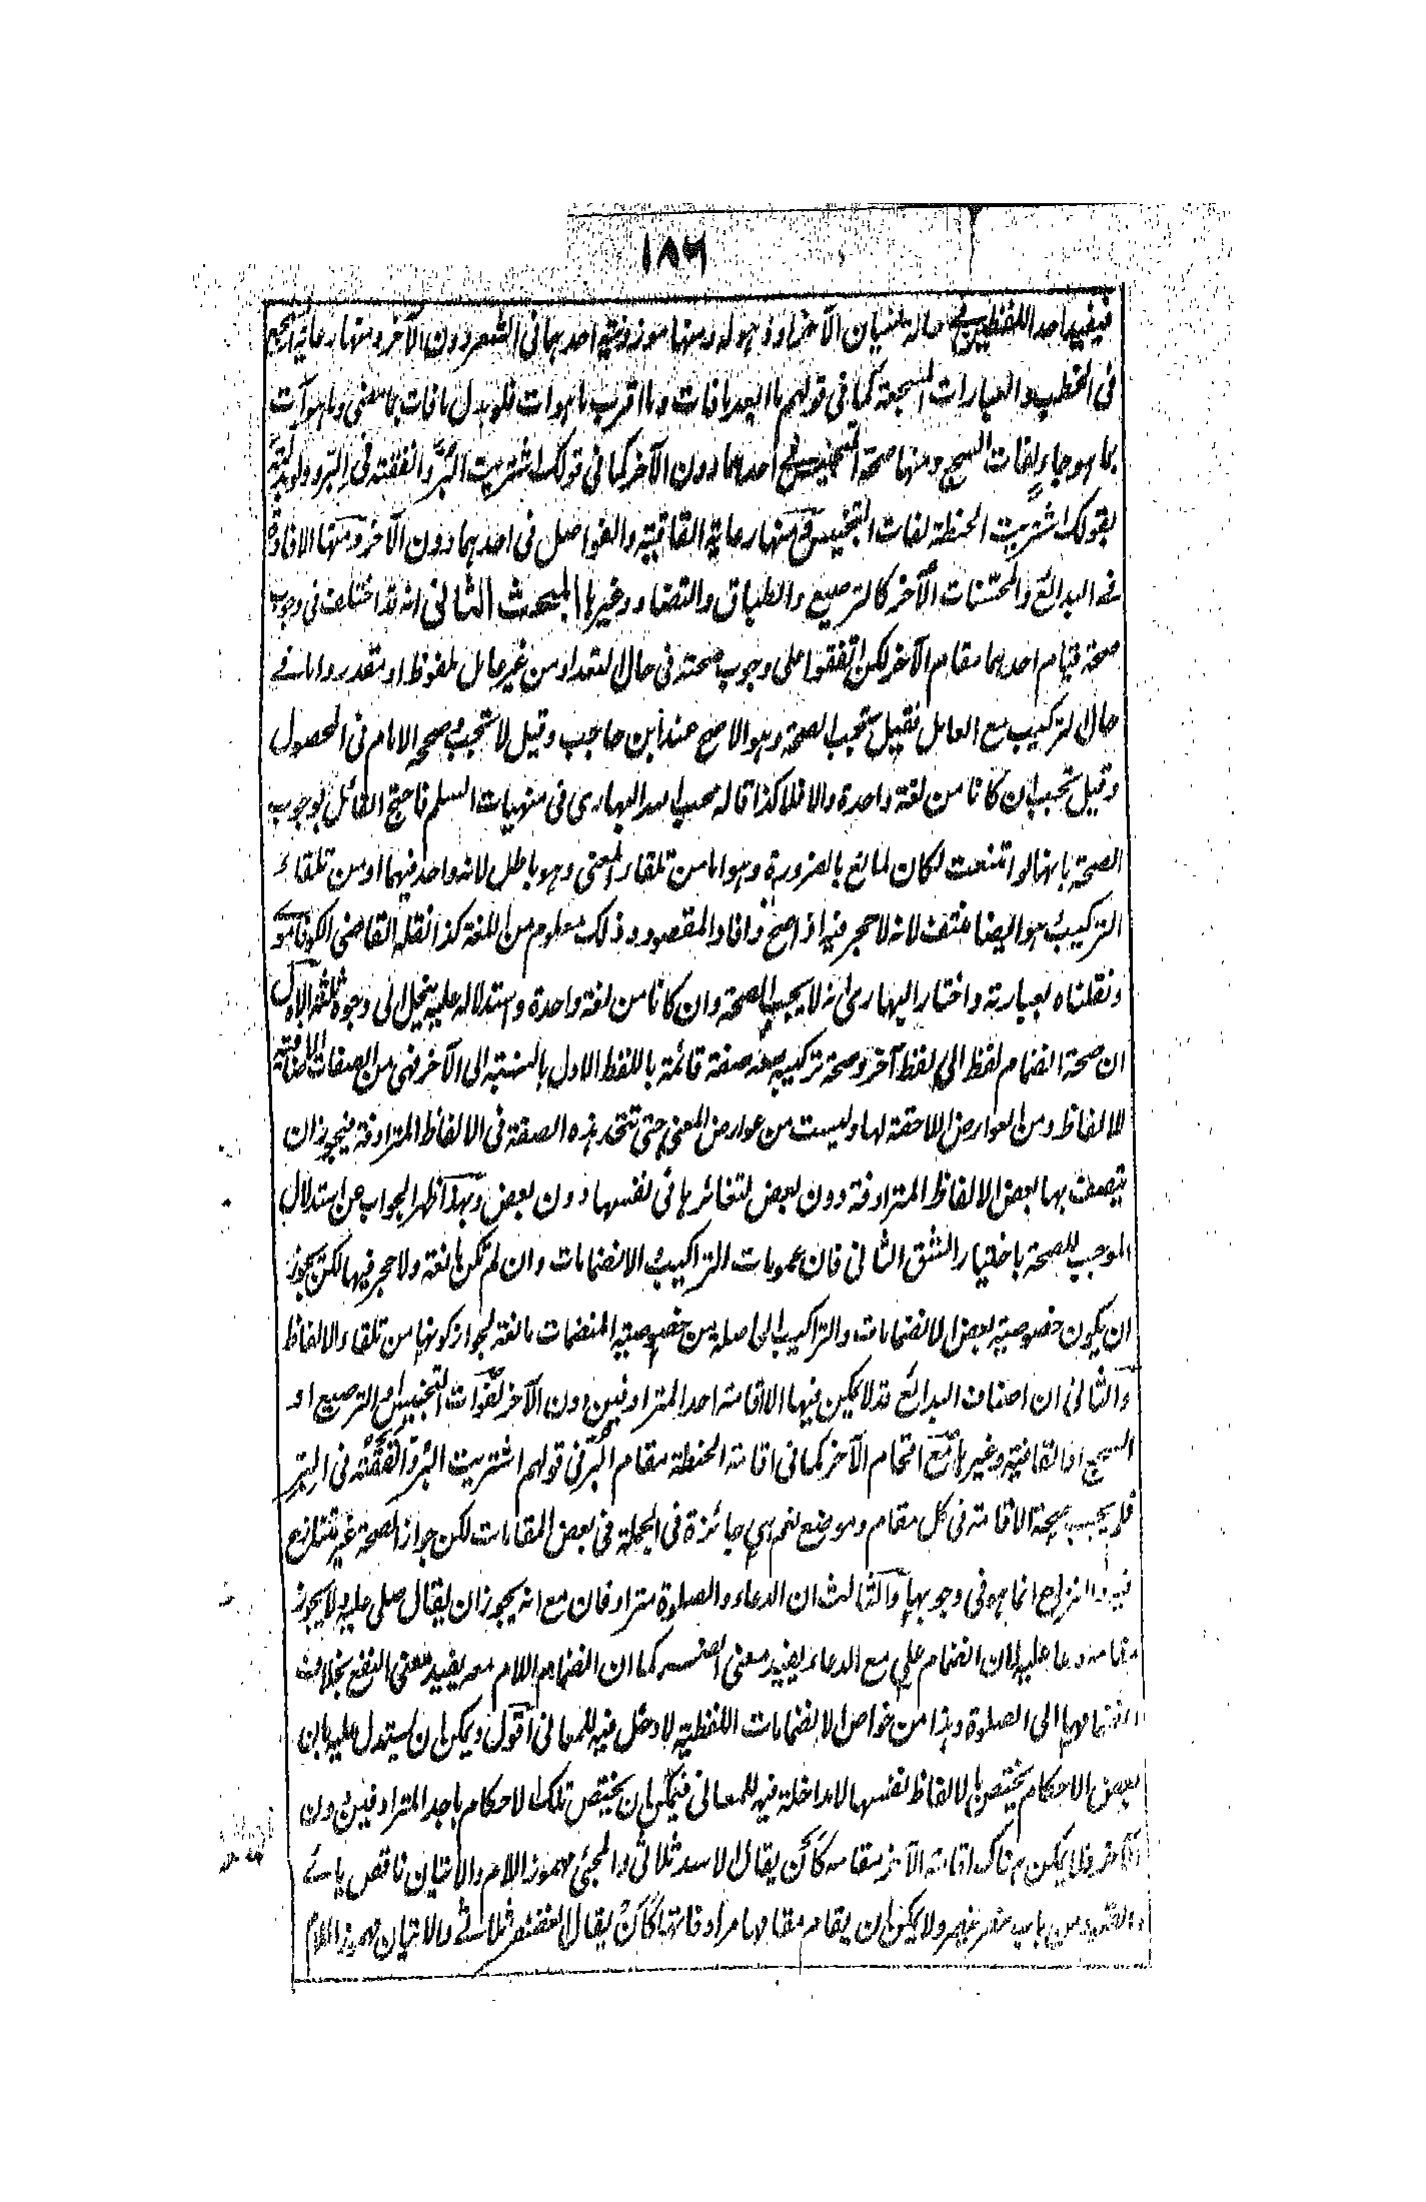 ١٨٦
فيفيد احد اللفظين فى حالة نسيان الآخر او ذهوله ومنها موزونية احدهما فى الشعر دون الآخر ومنها رعاية السجع
فى الخطب والعبارات المسجعة كما فى قولهم ما ابعد ما فات وما اقرب ما هو آت فلو بدل ما فات بما مضى وما هو آت
بما هو جاء لفات السجع ومنها صحة التجنيس فى احدهما دون الآخر كما فى قولك اشتريت البر وانفقته فى البر ولو بدلته
بقولك اشتريت الحنطة لفات التجنيس ومنها رعاية القافية والفواصل فى احدهما دون الآخر ومنها الافادة
فى البدائع والمحسنات الآخر كالترصيع والطباق والتضاد وغيرها المبحث الثانى انه قد اختلف فى وجوب
صحة قيام احدهما مقام الآخر لكن اتفقوا على وجوب صحته فى حال التعداد من غير عامل ملفوظ او مقدر واما فى
حال التركيب مع العامل فقيل تجب الصحة وهو الاصح عند ابن حاجب وقيل لا تجب وصححه الامام فى المحصول
وقيل تجب ان كانا من لغة واحدة والا فلا كذا قاله محب الله البهارى فى منهيات السلم فاحتج القائل بوجوب
الصحة بانها لو امتنعت لكان لمانع بالضرورة وهو اما من تلقاء المعنى وهو باطل لانه واحد فيهما او من تلقاء
التركيب وهو ايضا منتف لانه لا حجر فيه اذا صح وافاد المقصود وذلك معلوم من اللغة كذا نقله القاضى الكوفاموى
ونقلناه بعبارته واختار البهارى انه لا يجب الصحة وان كانا من لغة واحدة واستدلاله عليه ينحل الى وجوه ثلثة الاول
ان صحة انضمام لفظ الى لفظ آخر وصحة تركيبه معه صفة قائمة باللفظ الاول بالنسبة الى الآخر فهى من الصفات الاضافية
للالفاظ ومن العوارض اللاحقة لها وليست من عوارض المعنى حتى تتحد هذه الصفة فى الالفاظ المترادفة فيجوز ان
يتصف بها بعض الالفاظ المترادفة دون بعض لتغائرها فى نفسها دون بعض وبهذا ظهر الجواب عن استدلال
الموجب للصحة باختيار الشق الثانى فان عمومات التراكيب والانضمامات وان لم تكن مانعة ولا حجر فيها لكن يجوز
ان يكون خصوصية بعض الانضمامات والتراكيب الحاصلة من خصوصية المنضمات مانعة لجواز كونها من تلقاء الالفاظ
والثانى ان اصناف البدائع قد لا يمكن فيها الا اقامة احد المترادفين دون الآخر لفوات التجنيس او الترصيع او
السجع او القافية وغيرها مع اقحام الآخر كما فى اقامة الحنطة مقام البر فى قولهم اشتريت البر وانفقته فى البر
فلا يجب صحة الاقامة فى كل مقام وموضع نعم هى جائزة فى الجملة فى بعض المقامات لكن جواز الصحة غير متنازع
فيه والنزاع انما هو فى وجوبها والثالث ان الدعاء والصلوة مترادفان مع انه يجوز ان يقال صلى عليه ولا يجوز
مقامه دعا عليه لان انضمام على مع الدعاء يفيد معنى الضرر كما ان انضمام اللام معه يفيد معنى النفع بخلاف
انضمامهما الى الصلوة وهذا من خواص الانضمامات اللفظية لا دخل فيه للمعانى اقول ويمكن ان يستدل عليه بان
بعض الاحكام يختص بالالفاظ نفسها لا مداخلة فيه للمعانى فيمكن ان يختص تلك الاحكام باحد المترادفين دون
الآخر فلا يمكن هناك اقامة الآخر مقامه كأن يقال الاسد ثلاثى والمجئ مهموز اللام والاتيان ناقص يائى
والقعود من باب نصر ينصر ولا يمكن ان يقام مقامها مرادفاتها كأن يقال الغضنفر ثلاثى والاتيان مهموز اللام